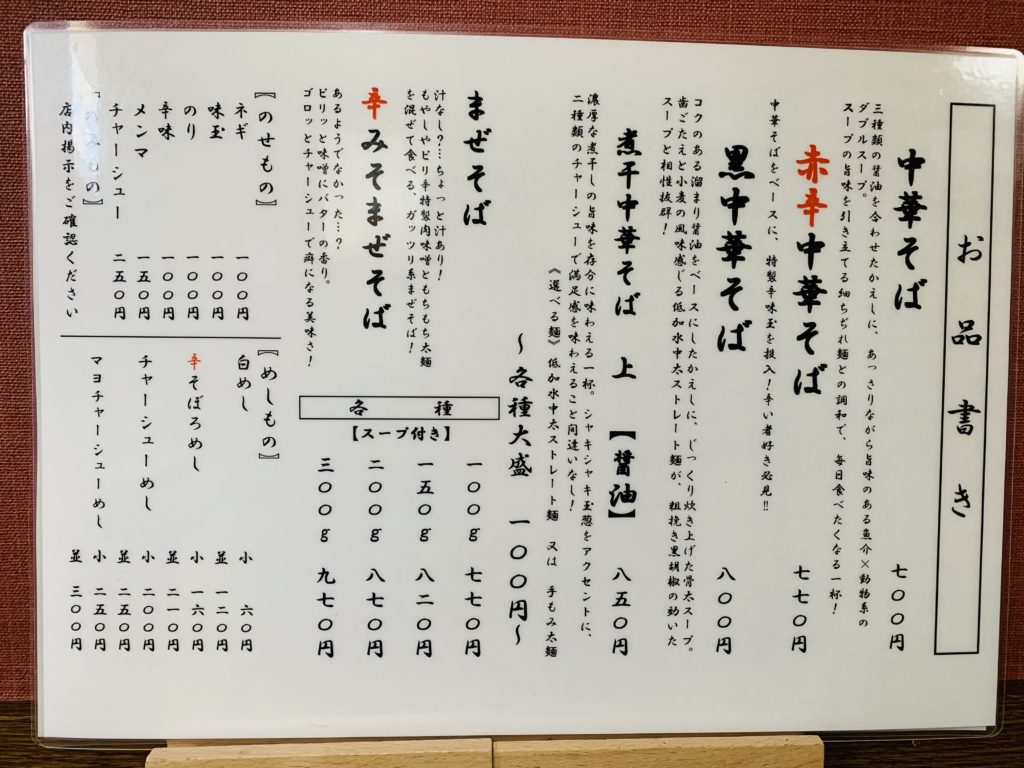 お品書き
中華そば 七〇〇円
三種類の醤油を合わせたかえしに、あっさりながら旨味のある魚介×動物系の
ダブルスープ。
スープの旨味を引き立てる細ちぢれ麺との調和で、毎日食べたくなる一杯！
赤辛中華そば 七七〇円
中華そばをベースに、特製辛味玉を投入！辛い者好き必見‼
黒中華そば 八〇〇円
コクのある溜まり醤油をベースにしたかえしに、じっくり炊き上げた骨太スープ。
歯ごたえと小麦の風味感じる低加水中太ストレート麺が、粗挽き黒胡椒の効いた
スープと相性抜群！
煮干中華そば 上 【醤油】 八五〇円
濃厚な煮干しの旨味を存分に味わえる一杯。シャキシャキ玉葱をアクセントに、
二種類のチャーシューで満足感を味わえること間違いなし！
《選べる麺》低加水中太ストレート麺 又は 手もみ太麺
～各種大盛 一〇〇円～
まぜそば
汁なし？…ちょっと汁あり！
もやしやピリ辛特製肉味噌ともちもち太麺
を混ぜて食べる、ガッツリ系まぜそば！
辛みそまぜそば
あるようでなかった…？
ピリッと味噌にバターの香り。
ゴロッとチャーシューで癖になる美味さ！
各種
【スープ付き】
一〇〇g 七七〇円
一五〇g 八二〇円
二〇〇g 八七〇円
三〇〇g 九七〇円
〖のせもの〗
ネギ 一〇〇円
味玉 一〇〇円
のり 一〇〇円
辛味 一〇〇円
メンマ 一五〇円
チャーシュー 二五〇円
〖のみもの〗
店内掲示をご確認ください
〖めしもの〗
白めし 小 六〇円
並 一二〇円
辛そぼろめし 小 一六〇円
並 二一〇円
チャーシューめし 小 二〇〇円
並 二五〇円
マヨチャーシューめし 小 二五〇円
並 三〇〇円